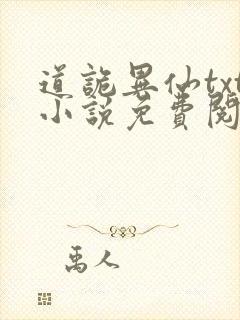 道詭異仙txt
小說免費閱
禹人